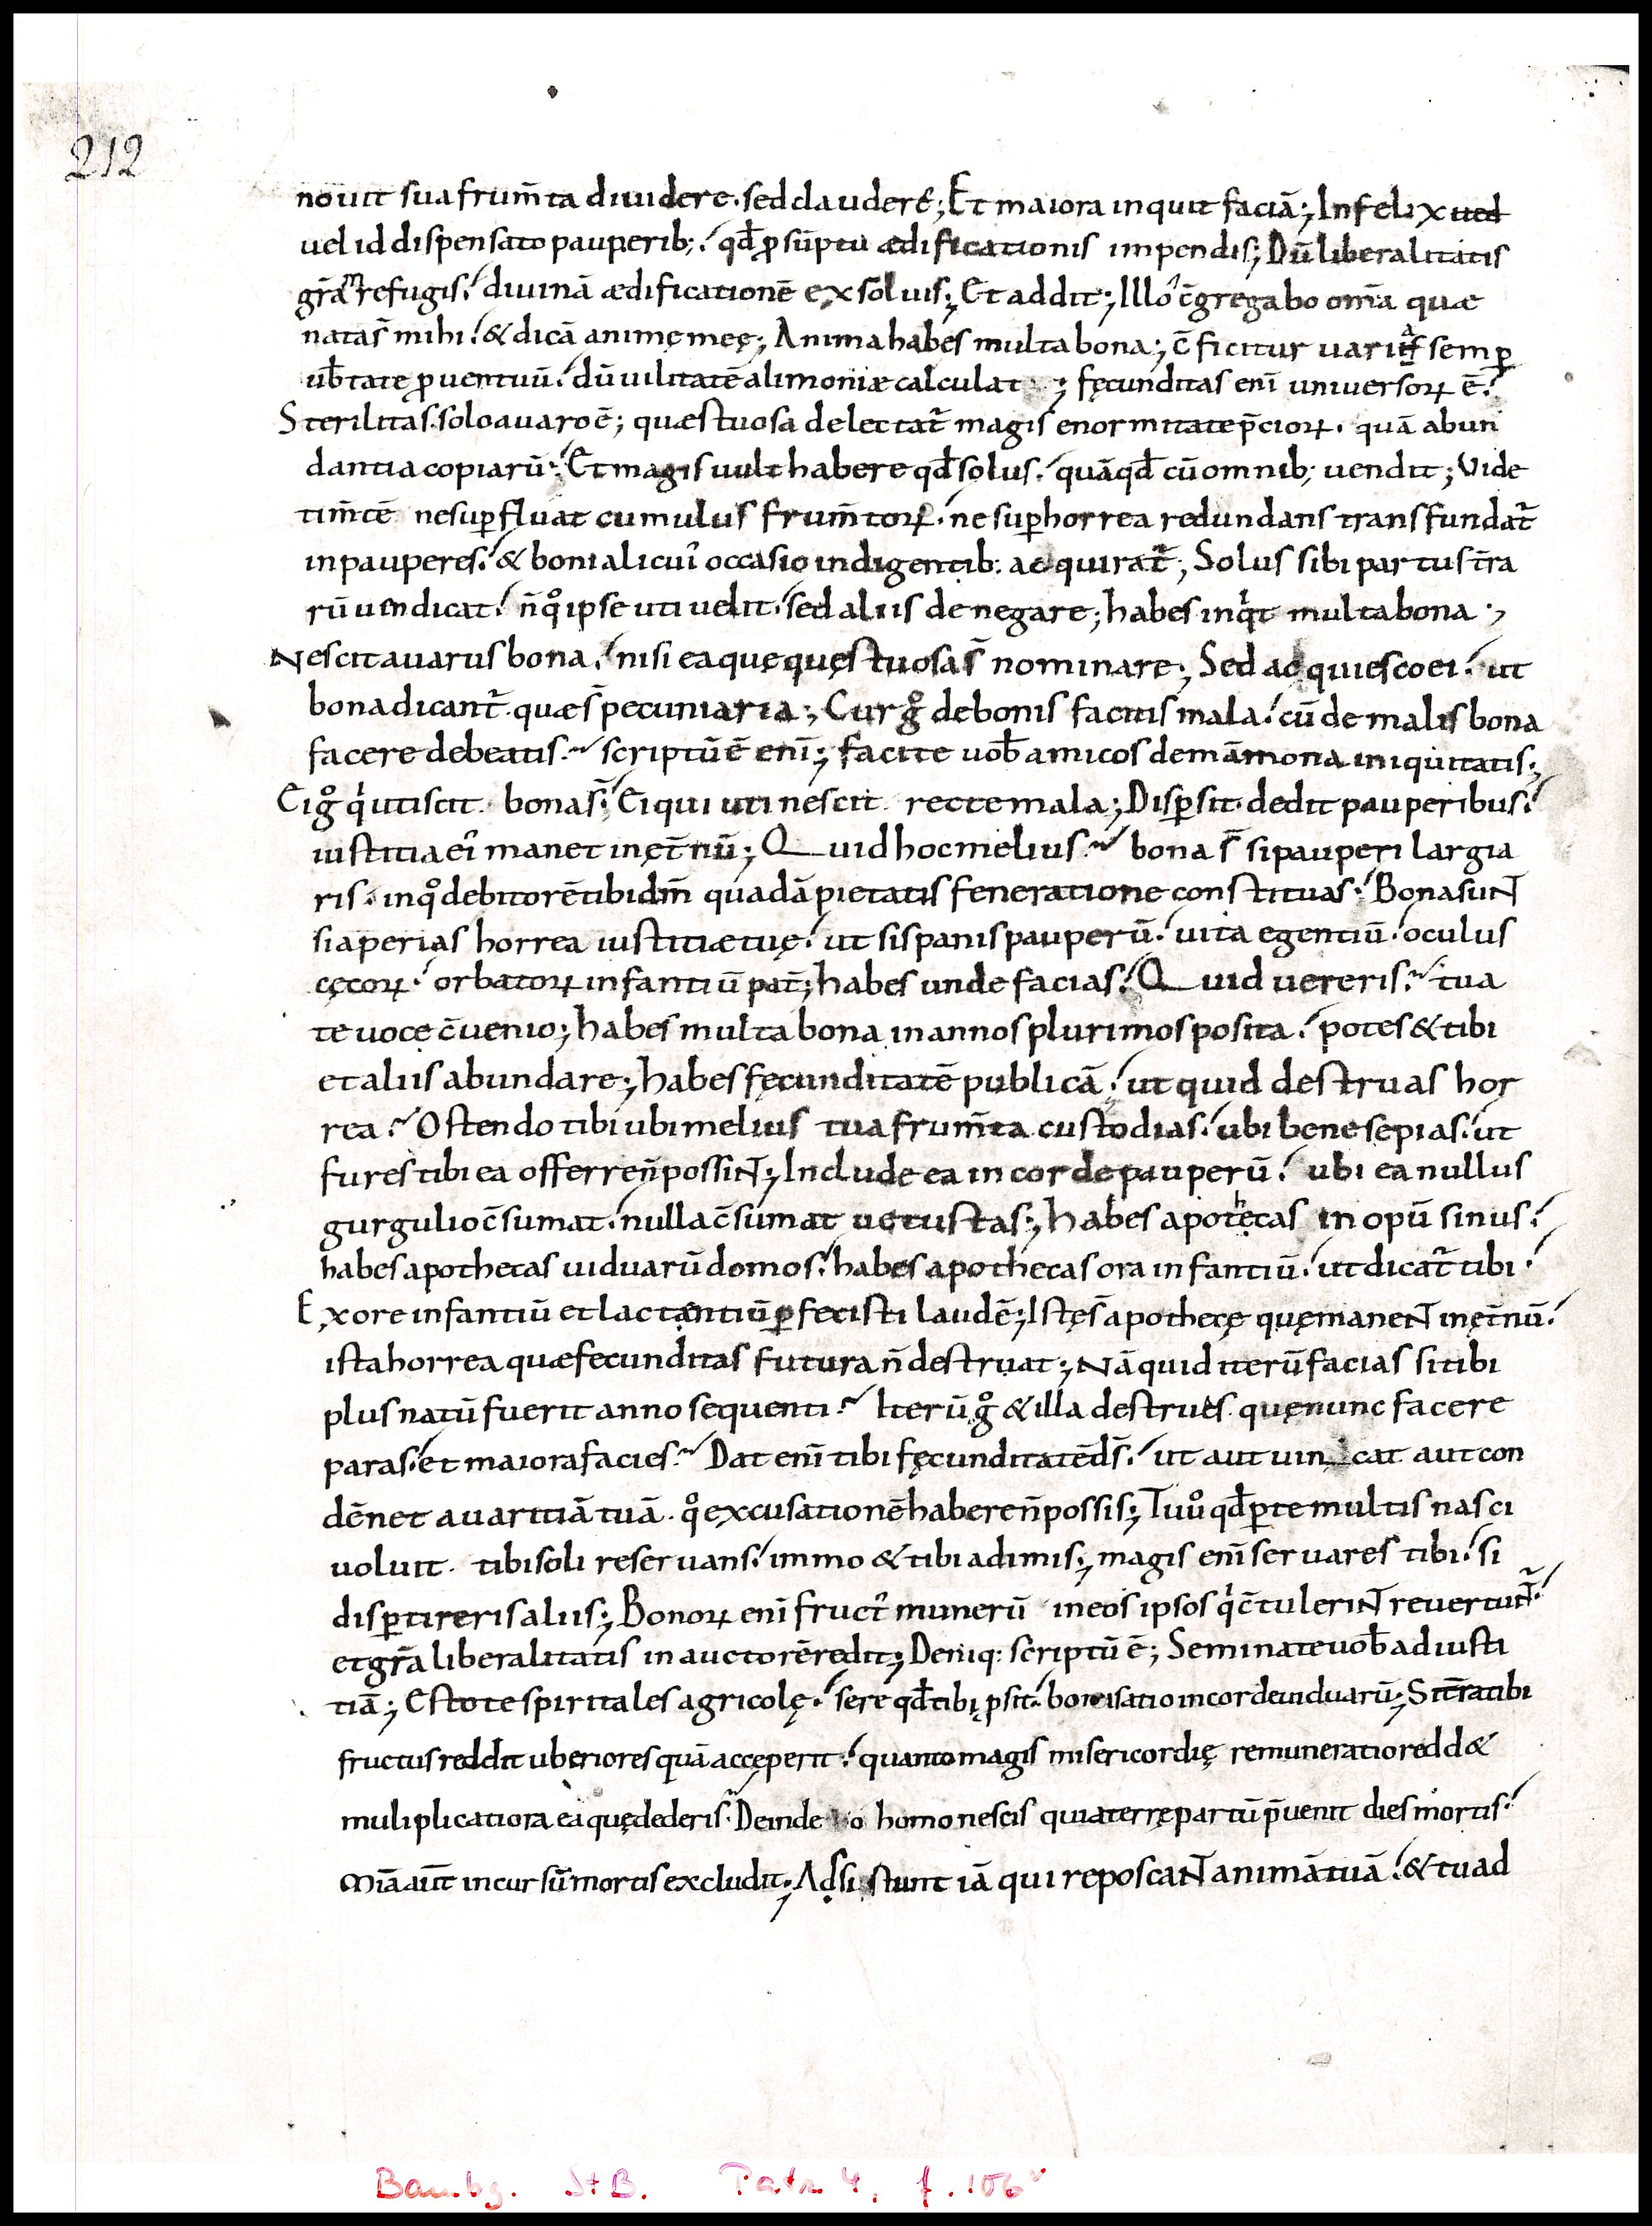 212
nouit sua frum̄ta diuidere. sed claudere; Et maiora inquit faciā; Infelix ued
uel id dispensato pauperib; qd̄ ꝓ sūptu ædificationis impendis; Dū liberalitatis
gr̄ā refugis. diuinā ædificationē exsoluis; Et addit; Illo c̄gregabo om̄a quæ
nata s̄ mihi. & dicā animę meę; Anima habes multa bona; c̄ficitur uarus semꝑ
ub̄tate ꝓuentuū. dū uilitatē alimoniæ calculat; fęcunditas eni̅ universoꝝ ē.
Sterilitas. solo auaro ē; quæstuosa delectat̄ magis enormitate p̄cioꝝ. quā abun
dantia copiarū. Et magis uult habere qd̄ solus. quā qd̄ cū omnib; uendit; Vide
tim̄tē ne suꝑfluat cumulus frum̄toꝝ. ne suꝑ horrea redundans transfundat̄
in pauperes. & boni alicui᾽ occasio indigentib: adquirat̄; Solus sibi partus t̄ra
rū uindicat. n̄ qͦ ipse uti uelit. sed aliis denegare; habes inqͥt multa bona.;
Nescit auarus bona. nisi ea quę quęstuosa s̄ nominare; Sed adquiesco ei. ut
bona dicant̄. quæ s̄ pecuniaria; Cur gͦ de bonis facitis mala. cū de malis bona
facere debeatis. scriptū ē eni̅; facite uob̄ amicos de māmona iniquitatis;
Ei gͦ qͥ uti scit. bona s̄. Ei qui uti nescit recte mala; Disꝑsit. dedit pauperibus.
iustitia ei᾽ manet in ęt̄nū; Quid hoc melius. bona s̄ si pauperi largia
ris. in qͦ debitorē tibi dm̄ quadā pietatis feneratione constituas. Bona suNT
si aperias horrea iustitiæ tuę. ut sis panis pauperū. uita egentiū. oculus
cęcoꝝ. orbatoꝝ infantiū pat̄; habes unde facias. Quid uereris. tua
te uoce c̄uenio; habes multa bona in annos plurimos posita. potes & tibi
et aliis abundare; habes fęcunditatē publicā. ut quid destruas hor
rea. Ostendo tibi ubi melius tua frum̄ta custodias. ubi bene sepias. ut
fures tibi ea offerre n̄ possiNT; Include ea in corde pauperū. ubi ea nullus
gurgulio c̄sumat. nulla c̄sumat uetustas; habes apothecas inopū sinus.
habes apothecas uiduarū domos. habes apothecas ora infantiū. ut dicat̄ tibi.
Ex ore infantiū et lactantiū ꝑfecisti laudē; Istę s̄ apothecę quę maneNT in ęt̄nū.
ista horrea quæ fecunditas futura n̄ destruat; Nā quid iterū facias si tibi
plus natū fuerit anno sequenti. Iterū gͦ & illa destrues. quę nunc facere
paras. et maiora facies. Dat eni̅ tibi fęcunditatē ds̄. ut aut uincat aut con
dēnet auaritiā tuā. qͦ excusationē habere n̄ possis; Tu uͦ qd̄ ꝑ te multis nasci
uoluit. tibi soli reseruans. immo & tibi adimis; magis eni̅ seruares tibi. si
disꝑtireris aliis; Bonoꝝ eni̅ fruct᾽ munerū in eos ipsos qͥ c̄tuleriNT reuertuNT̄.
et gr̄a liberalitatis in auctorē redit; Deniq: scriptū ē; Seminate uob̄ ad iusti
tiā; Estote spiritales agricolę. sere qd̄ tibi ꝓsit. bona satio in corde uiduarū; Si t̄ra tibi
fructus reddit uberiores quā accęperit. quanto magis misericordię remuneratio redd&
muliplicatiora ea quę dederis. Deinde o homo nescis quia terrę partū p̄uenit dies mortis.
Mīa aut̄ incursū mortis excludit; Adsistunt iā qui reposcaNT animā tuā. & tu ad
Bambg. StB. Patr. 4, f. 106ᵛ